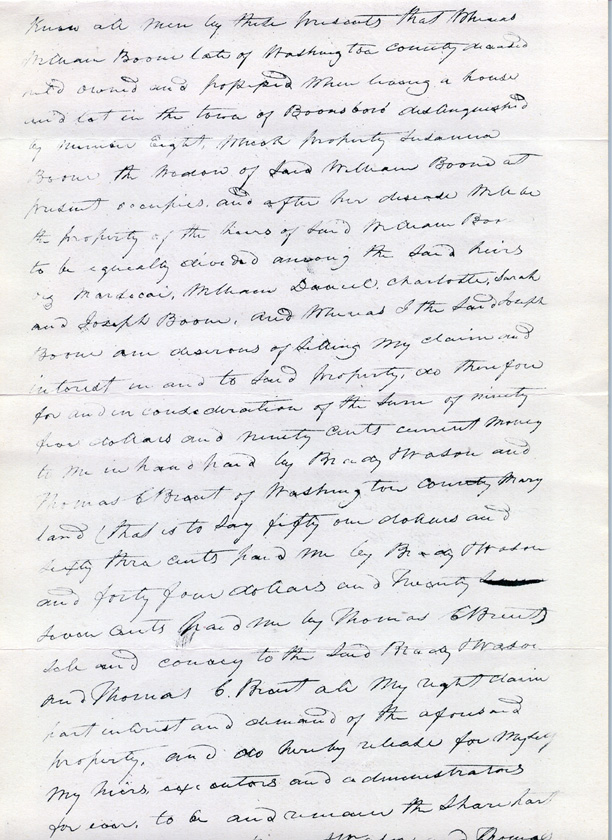 Know all men by these presents that Whereas
William Boone late of Washington County deceased
owned and possessed when living a house
and lot in the town of Boonsboro distinguished
by number Eight, which property Susanna
Boone the Widow of Said William Boone at
present occupies, and after her disease will be
the property of the heirs of Said William
to be equally divided among the Said heirs
Mordecai, William Daniel, Charlotte, Sarah
and Joseph Boone, and Whereas I the Said Joseph
Boone am desirous of Selling My claim and
interest in and to Said property, do therefore
for and in consideration of the Sum of ninety
five dollars and ninety cents current money
to me in hand paid by Brady Wason and
Thomas C Brent of Washington County Mary
land (that is to Say fifty one dollars and
Sixty three cents paid me by Brady Wason
and forty four dollars and Twenty
Seven cents paid me by Thomas C Brent)
Sale and convey to the Said Brady Wason
and Thomas C. Brent all My right claim
part interest and demand of the aforesaid
property, and do hereby release for Myself
My heirs executors and administrators
for ever, to be and remain the Share part
Thomas